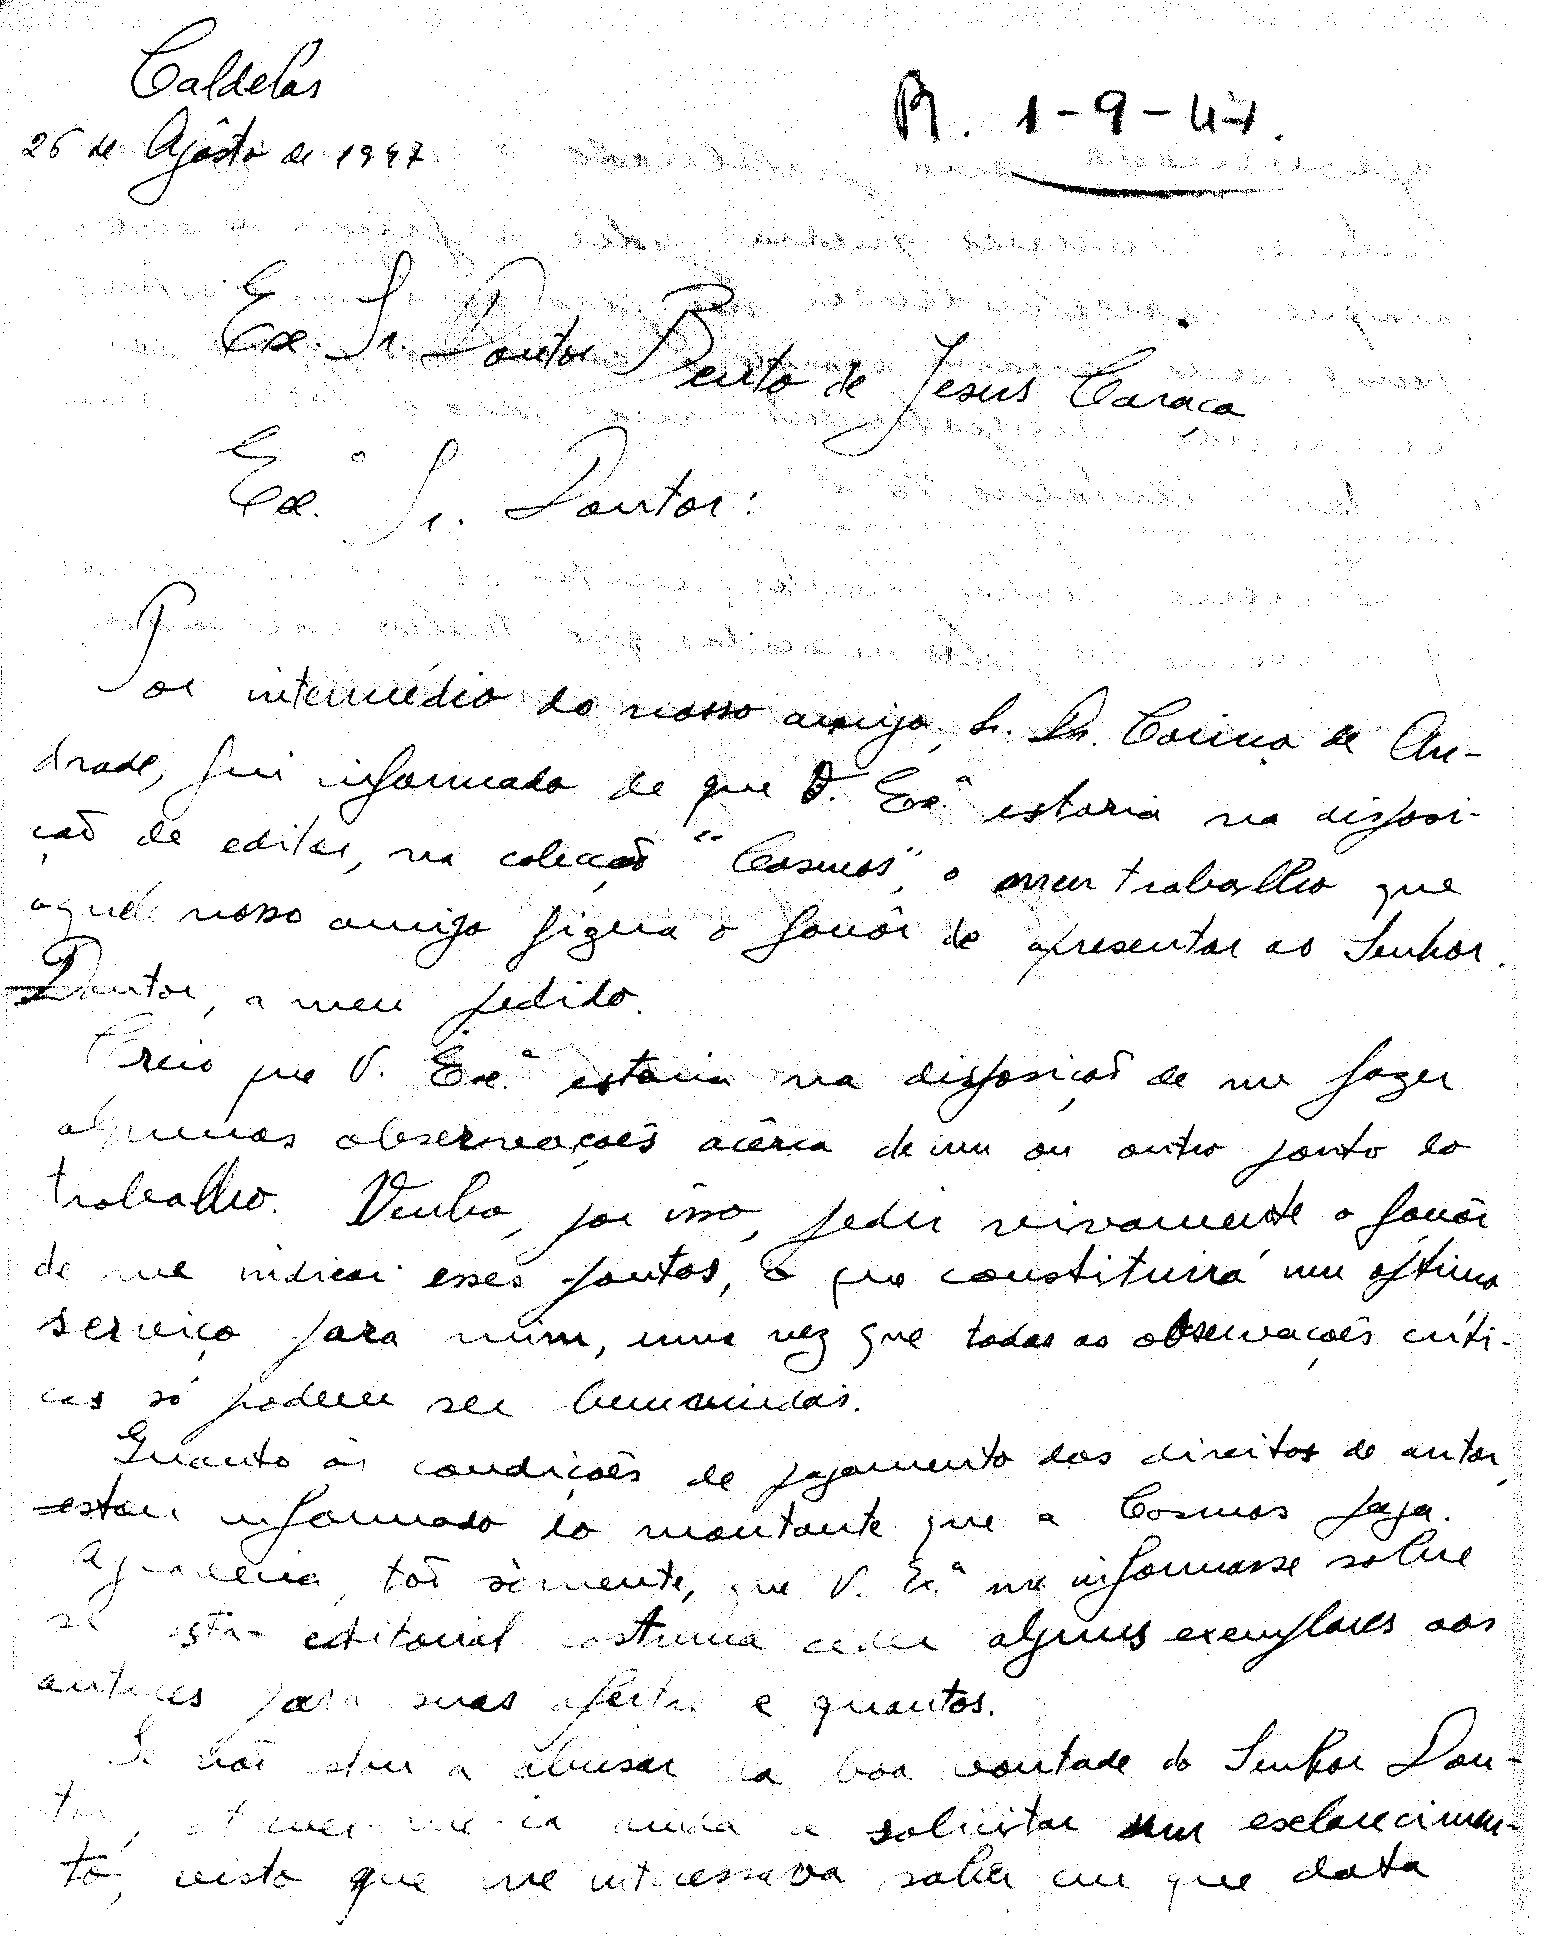 Caldelas
R. 1-9-47.
26 de Agôsto de 1947
Ex. Sr. Doutor Bento de Jesus Caraça
Ex.º Sr. Doutor:
Por intermédio do nosso amigo, Sr. Dr. Corino de An-
drade, fui informado de que V. Ex.ª estaria na disposi-
ção de editar, na colecção "Cosmos", o meu trabalho que
aquele nosso amigo fizera o favôr de apresentar ao Senhor
Doutor, a meu pedido.
Creio que V. Ex.ª estaria na disposição de me fazer
algumas observações acêrca de um ou outro ponto do
trabalho. Venho, por isso, pedir vivamente o favôr
de me indicar esses pontos, o que constituirá um óptimo
serviço para mim, uma vez que todas as observações críti-
cas só podem ser bemvindas.
Quanto às condições de pagamento dos direitos de autor,
estou informado do montante que a Cosmos paga.
Agradecia, tão sòmente, que V. Ex.ª me informasse sobre
se esta editorial costuma ceder alguns exemplares aos
autores para suas ofertas e quantos.
Se não estou a abusar da boa vontade do Senhor Dou-
tor, atrever-me-ia ainda a solicitar um esclarecimen-
to, visto que me interessava saber em que data